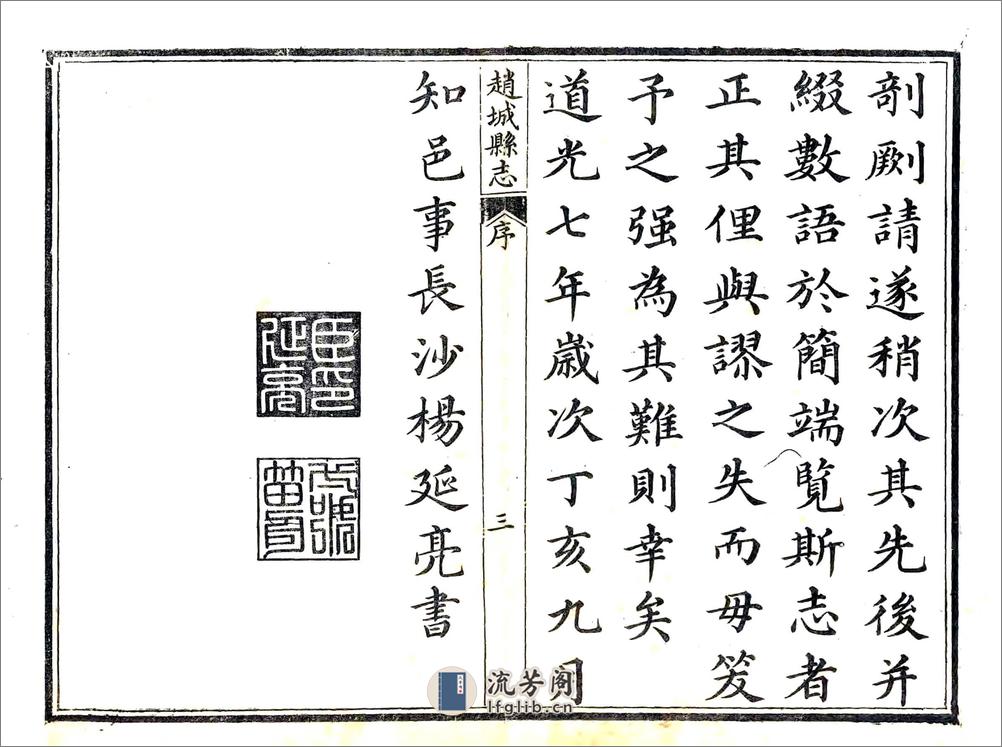 剞劂請遂稍次其先後并
綴數語於簡端覽斯志者
正其俚與謬之失而毋笑
予之强為其難則幸矣
道光七年歲次丁亥九月
趙城縣志
序
三
知邑事長沙楊延亮書
臣印延亮
流芳阁
lfglib.cn